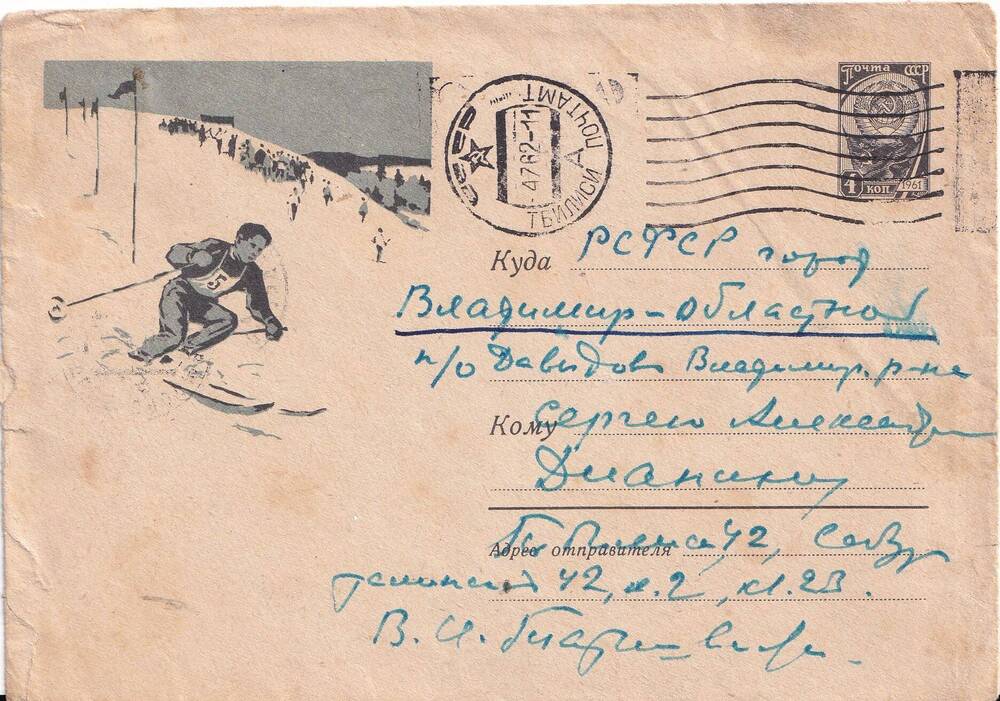 Почта СССР
4 коп 1961
СССР
ТБИЛИСИ ПОЧТАМТ
4762-11
5
Куда РСФСР город
Владимир-областной
п/о Давыдово Владимир. р-на
Кому Сергею
Дианину
Адрес отправителя
Тбилиси, 42,
42, к. 2, кв. 23.
В. И.